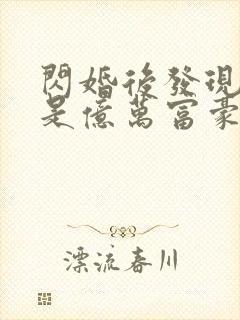 閃婚後發現
是億萬富豪
漂流春川